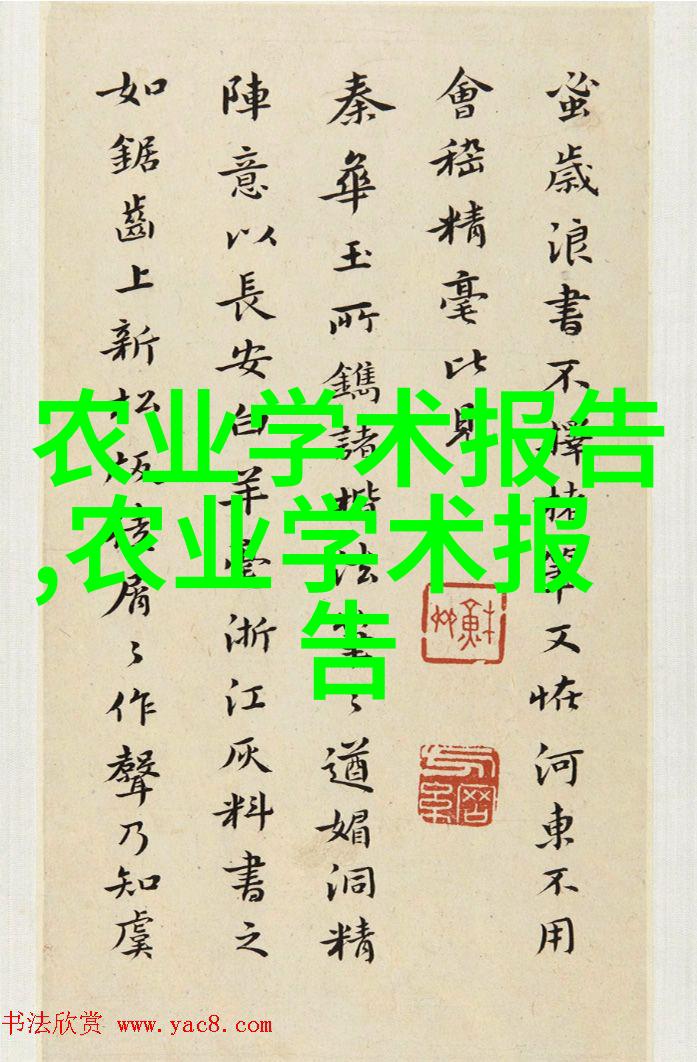 蚤歲浪書不擇楮筆又恠河東不用
會稽精毫比見
秦華玉所鐫諸楷法遒媚洞精
陣意以長安白羊毫浙江灰料書之
如鋸齒上新松版屑〻作聲乃知虞
农业学术报告
,农业学术报
告
书法欣赏 www.yac8.com